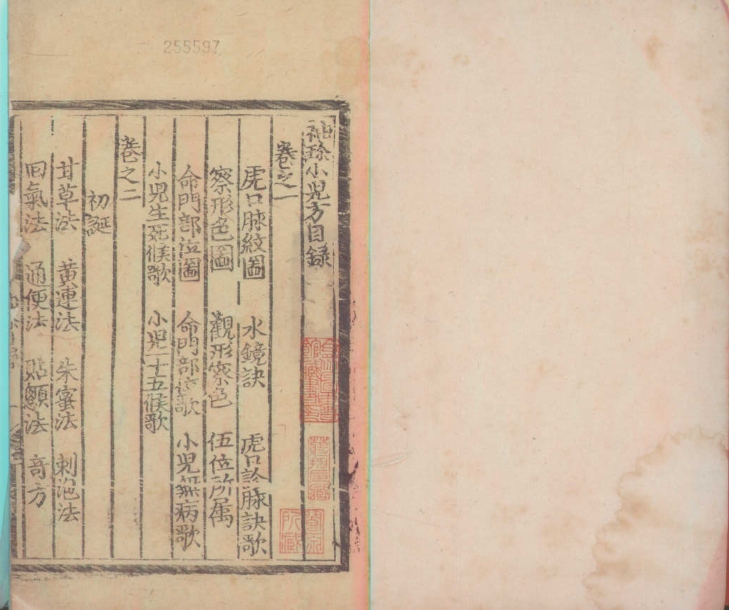 255597
袖珍小兒方目錄
卷之一
虎口脉紋圖 水鏡訣 虎口診脉訣歌
察形色圖 觀形察色 伍位所属
命門部位圖 命門部位歌 小兒無病歌
小兒生死候歌 小兒一十五候歌
卷之二
初誕
甘草法 黄連法 朱蜜法 刺泡法
回氣法 通便法 貼顖法 奇方